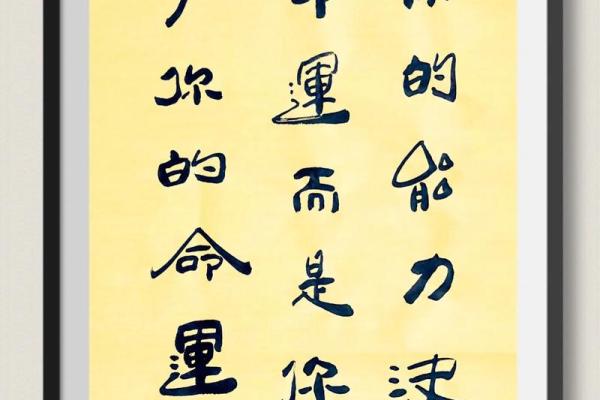 的能力決
運而是你
你的命運